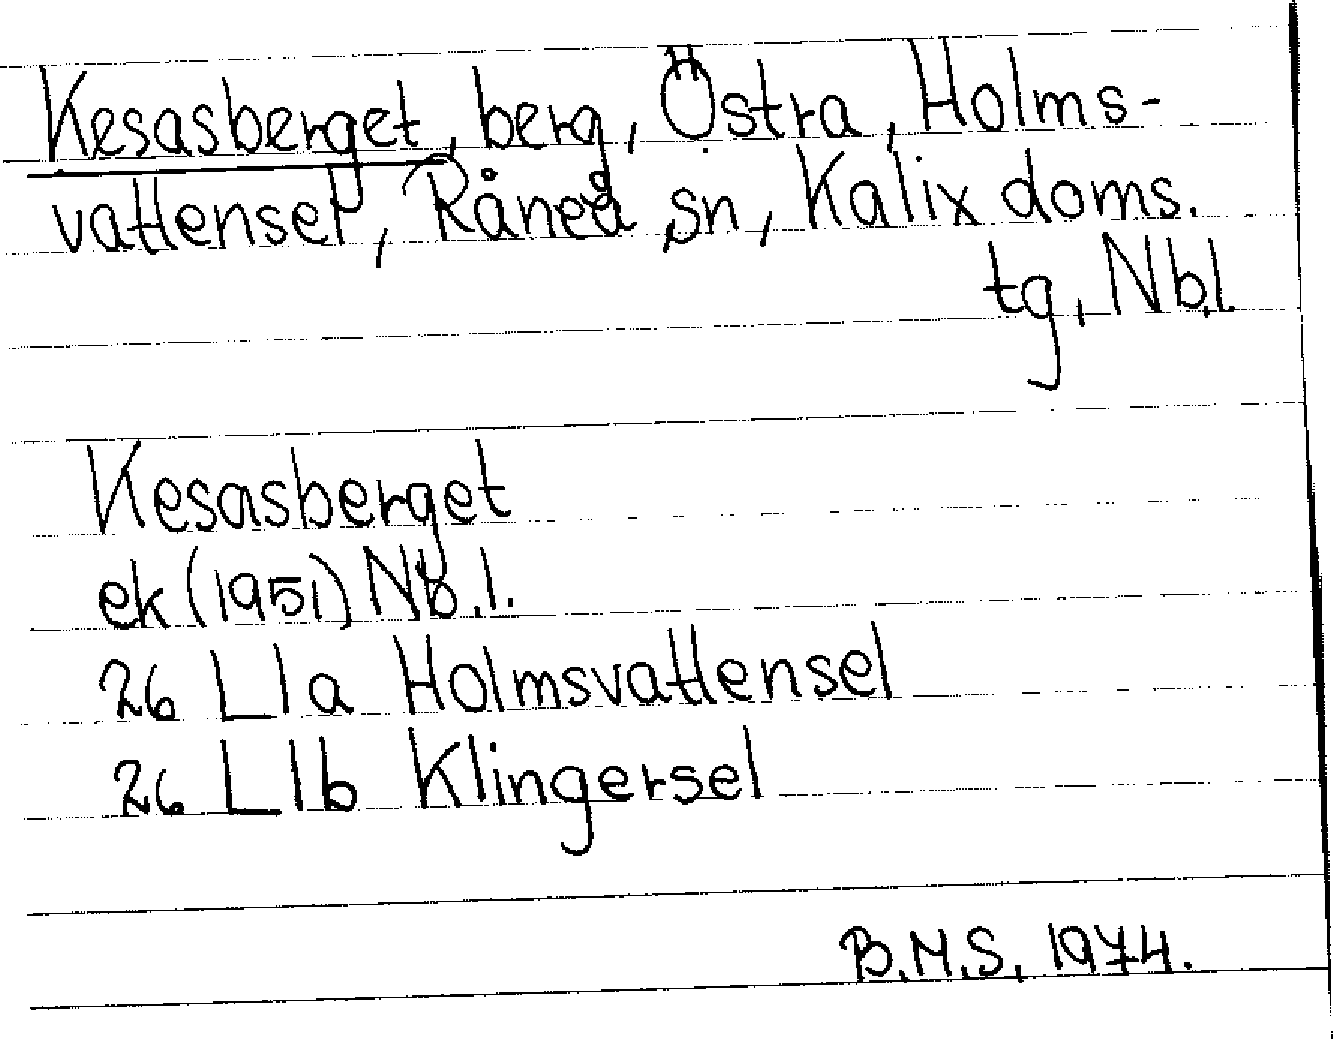 Kesasberget, berg, Östra, Holms-
vattensel, Råneå sn, Kalix doms.
tg, Nb.l.
Kesasberget
ek (1951) Nb.l.
26 L 1a Holmsvattensel
26 L 1b Klingersel
B.M.S, 1974.